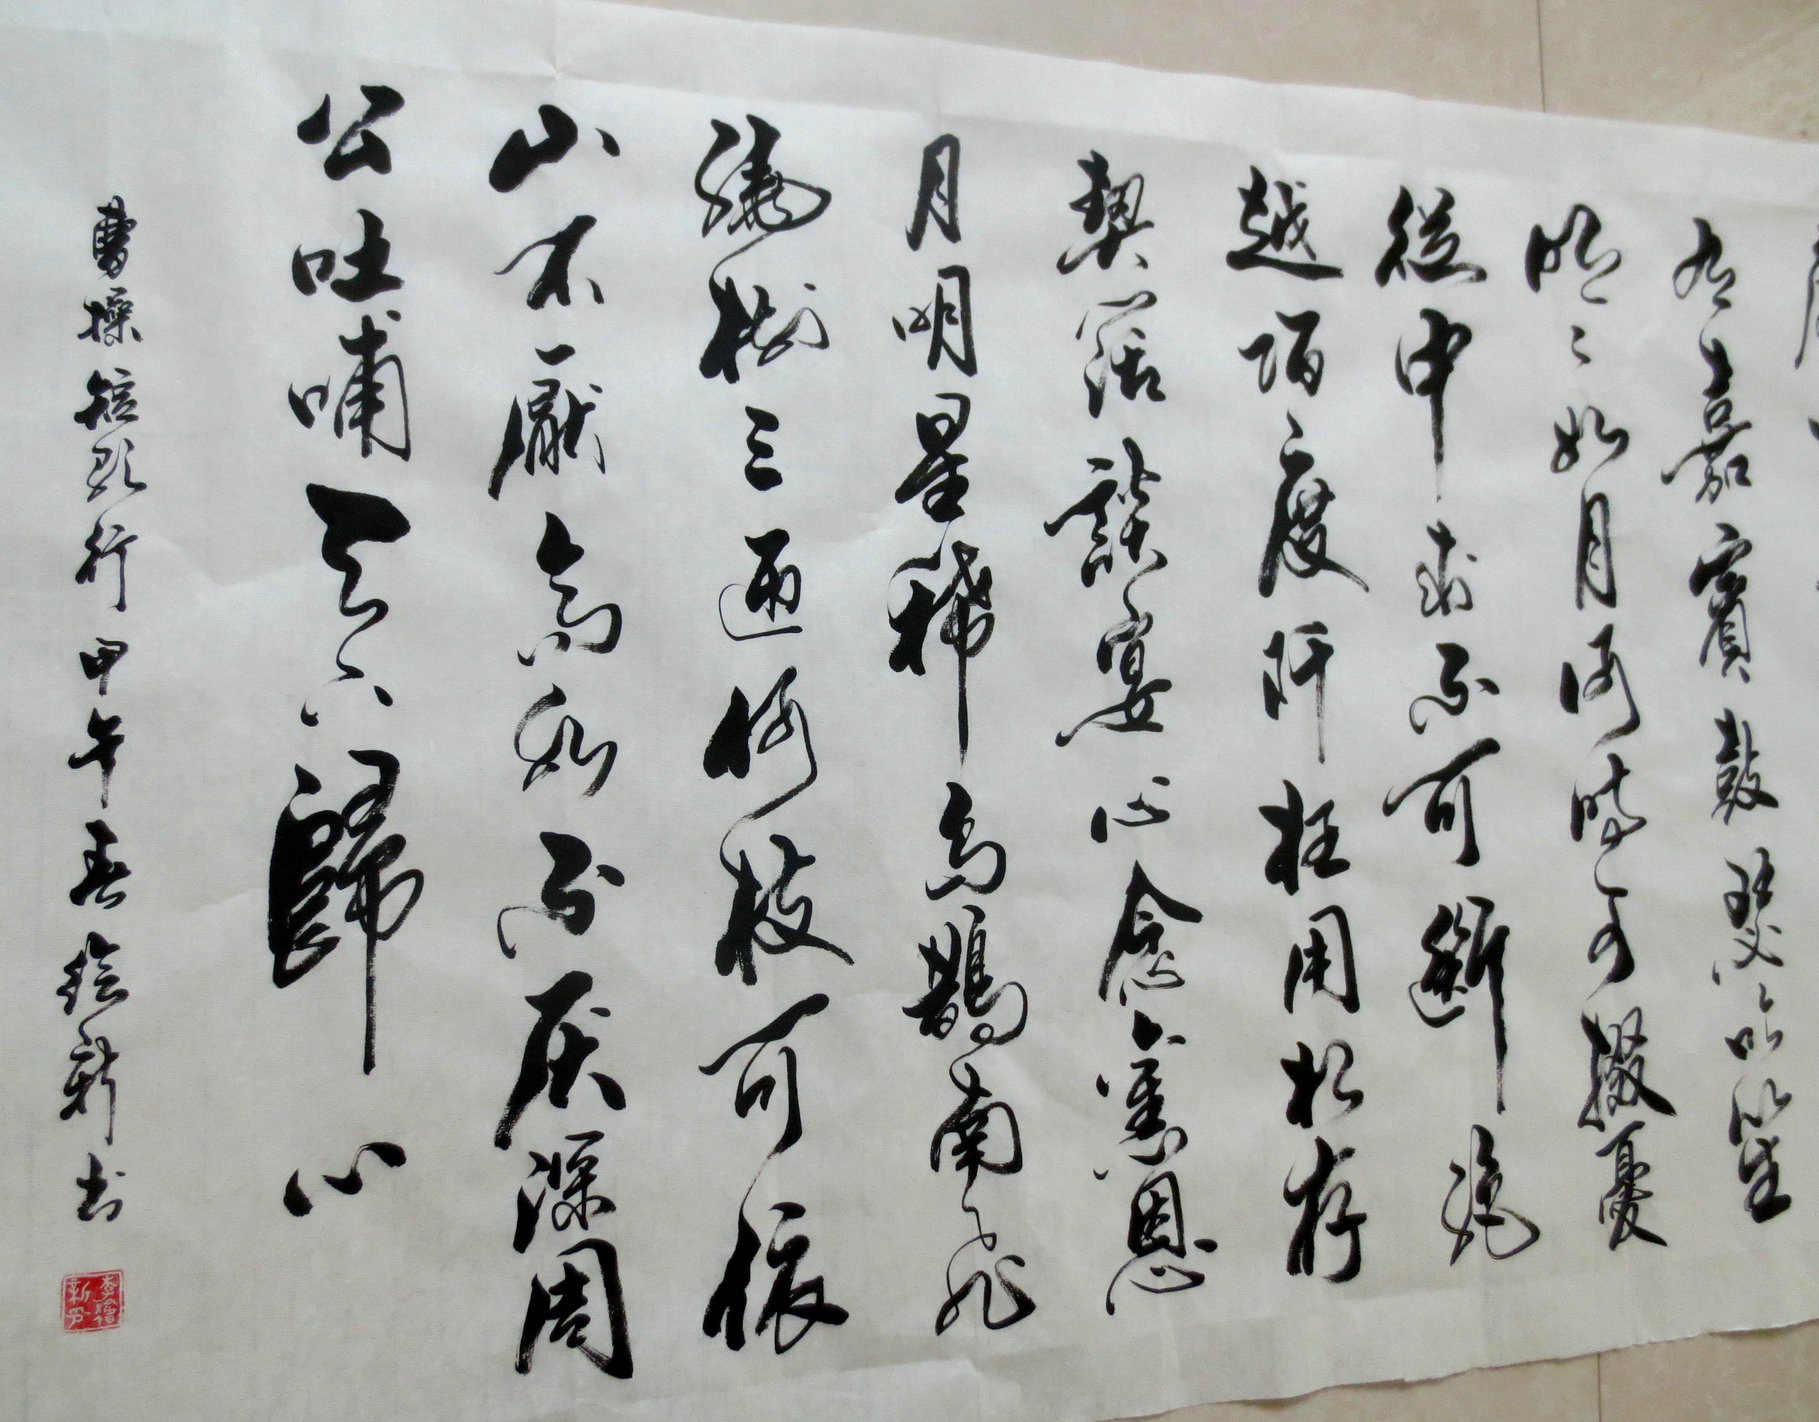 有嘉賓鼓瑟吹笙
明〻如月何時可掇憂
從中來不可斷絕
越陌度阡枉用相存
契闊談宴心念舊恩
月明星稀烏鵲南飛
繞樹三匝何枝可依
山不厭高水不厌深周
公吐哺天下歸心
曹操短歌行甲午春绘新书